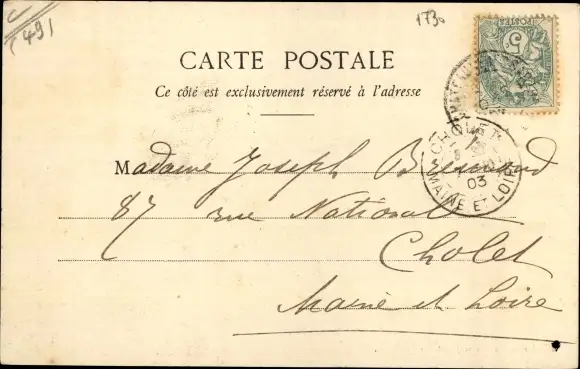 1491
1730
POSTES
5
CARTE POSTALE
Ce côté est exclusivement réservé à l'adresse
CHOLET
03
MAINE ET LOIRE
Madame Joseph
87 rue National
Cholet
Maine et Loire